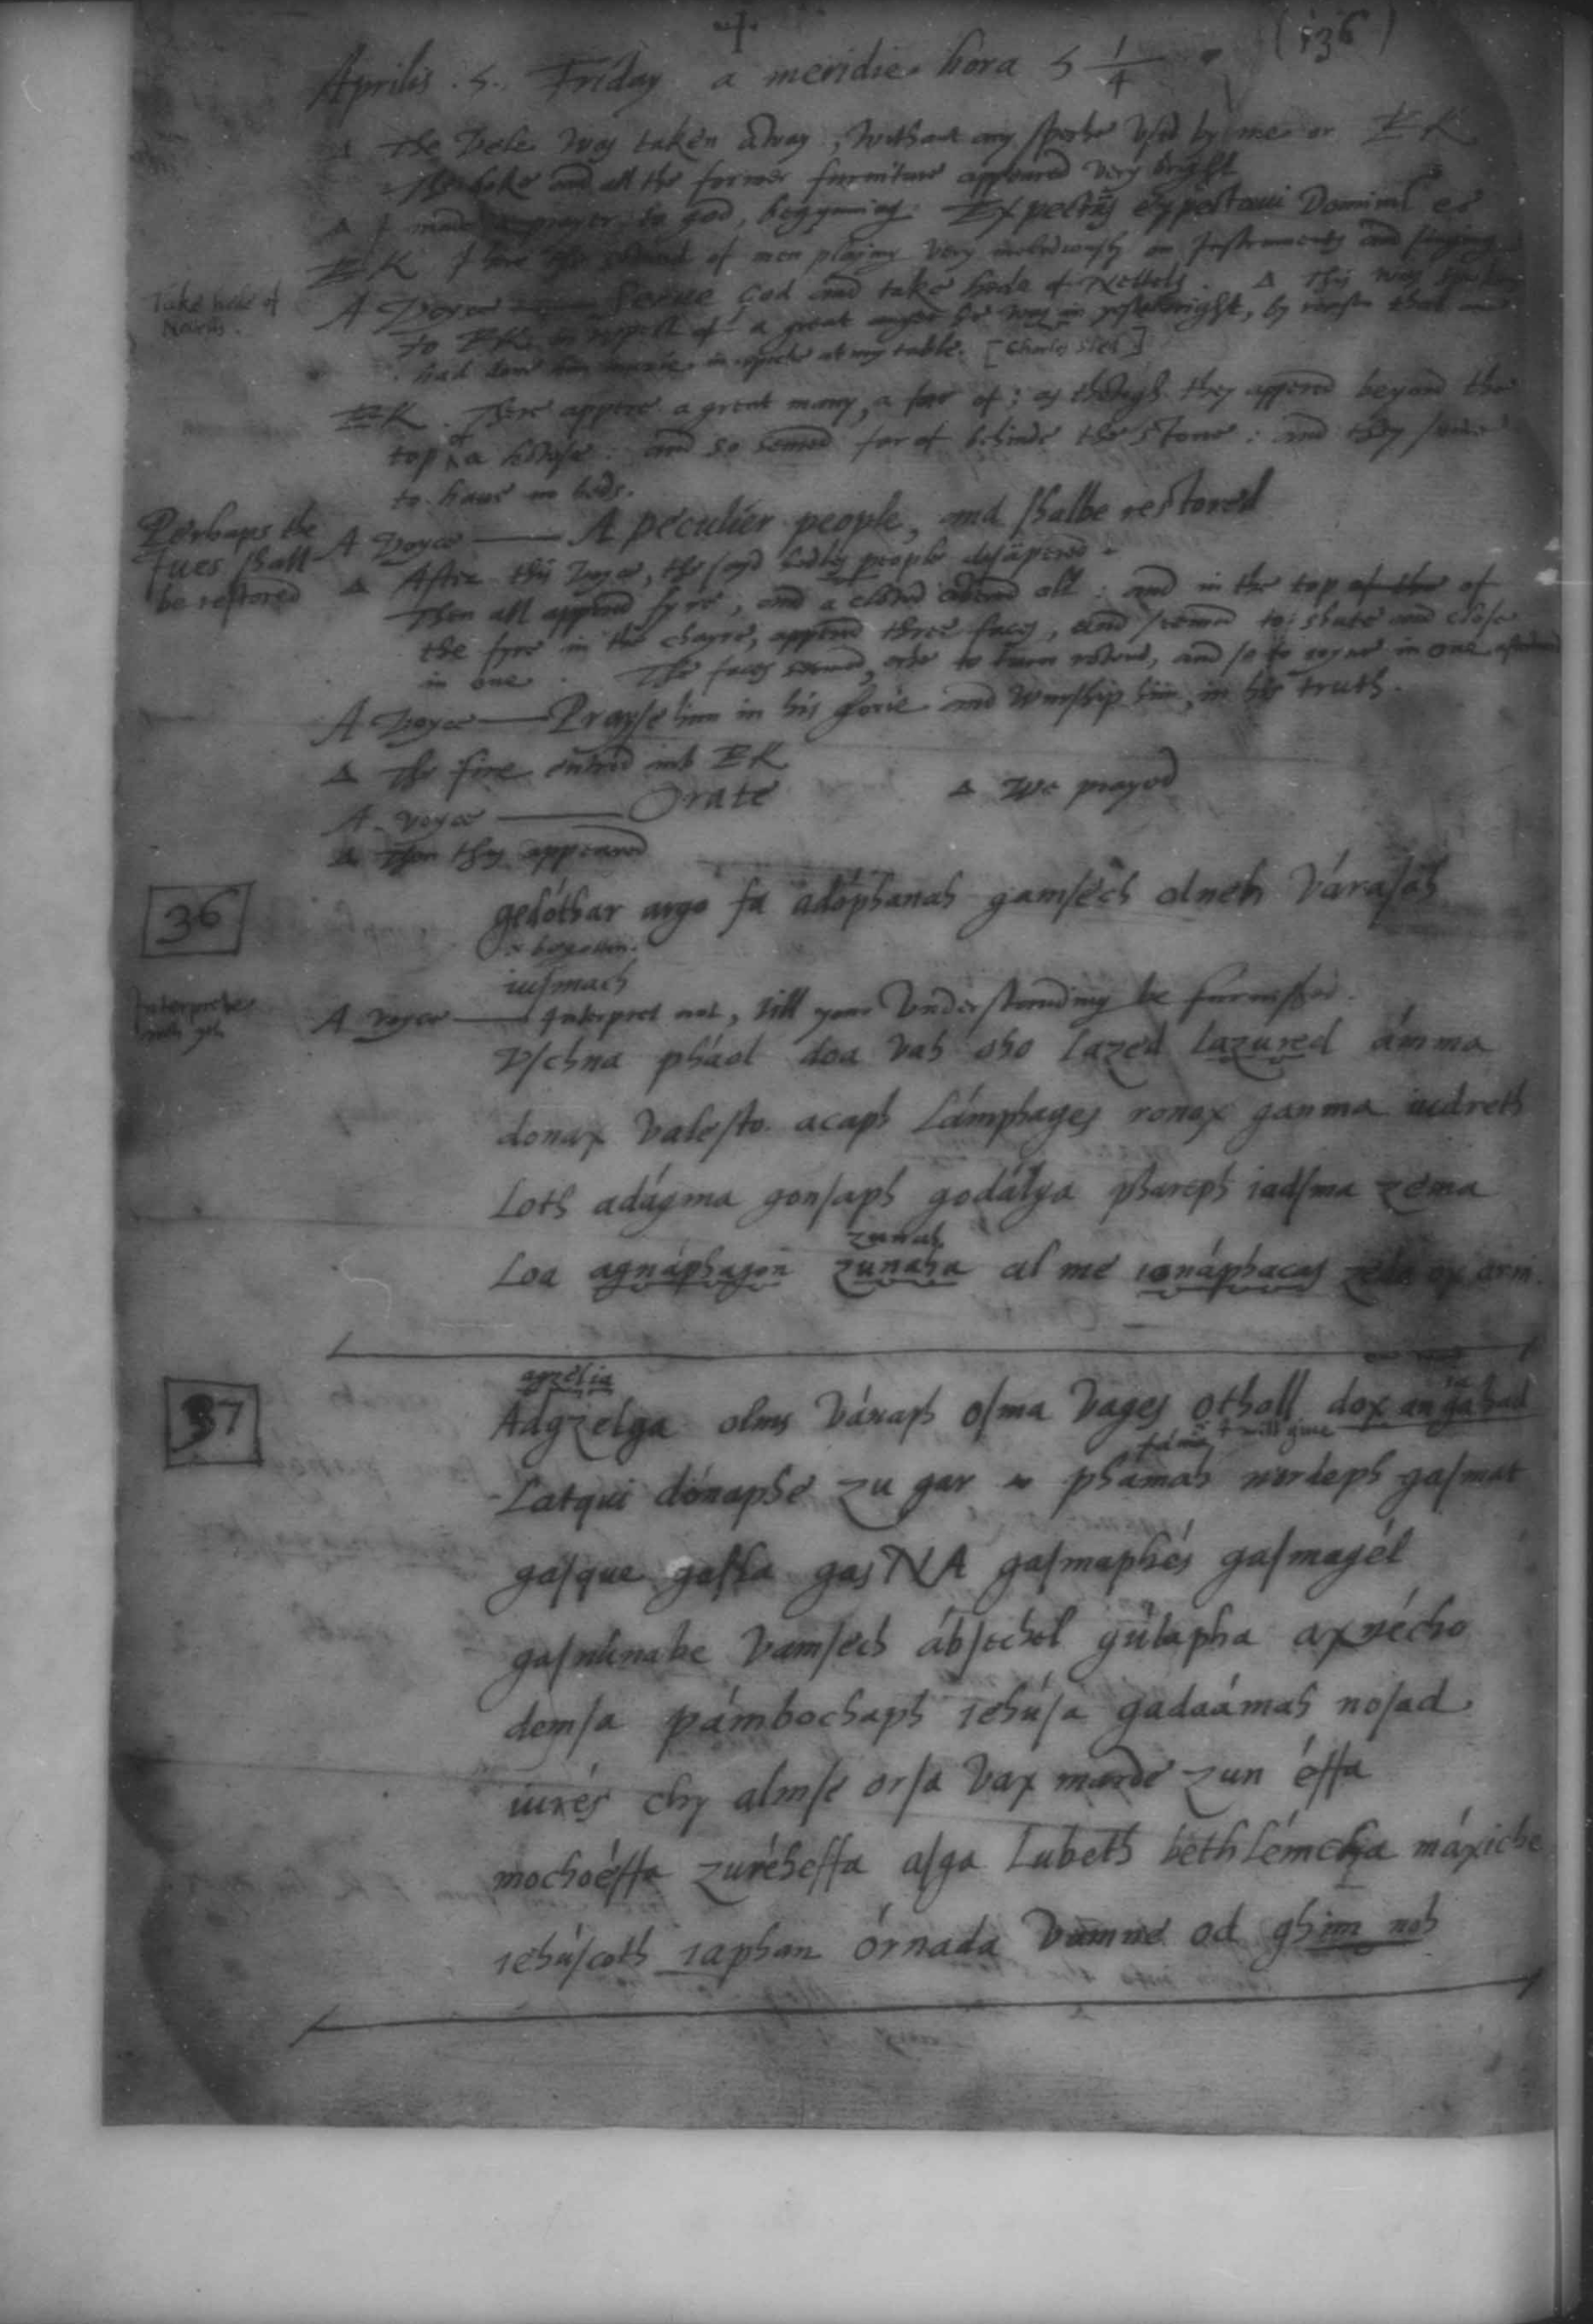 (136)
Aprilis . 5. Friday a meridie hora 5 1/4
Δ The Vele was taken away, without any speche used by me or EK
The boke and all the former furniture appeared very bright
Δ I made a prayer to god, begynning: Expectans expectavi Dominum etc
EK I here the sound of men playing very melodiously on Instruments and singing
Take hede of
A Voyce Serue God and take hede of Nettels. Δ This was
to EK in respect of a great anger he was in yesternight, by reason that one
had done him iniurie in speche at my table. [Charles Sled]
EK . There appere a great many, a far of: as though they appered beyond the
top of a howse: and so semed far of behinde the stone: and they seme
to haue no heds.
Perhaps the
Iues shall
be restored
A Voyce — A peculier people, and shalbe restored
Δ After this voyce, the sayd hedles people disapered.
Then all appered fyre, and a clowd couered all: and in the top of the of
the fyre in the chayre, appered three faces, and seemed to shute and close
in one. The faces semed, eche to turn rownd, and so to ioyne in one afterward
A Voyce — Prayse him in his glorie and worship him, in his truth.
Δ The fire entred into EK
A voyce — Orate Δ We prayed
Δ Then thus appeared
36
gedóthar argo fa adóphanah gamséch olneh Várasah
× begotten.
iusmach
Interpretes
A voyce — Interpret not, till your Understanding be furnished.
Vschna pháol doa Vah oho lazed lazured ámma
donax Valesto. acaph Lámphages ronox ganma iudreth
Loth adágma gonsaph godálga phareph iadsma zema
zunah
Loa agnáphagon zunaha al me ionáphacas zeda ox arni.
agzelia
37
Adgzelga olms Vánaph osma Vages otholl dox an ga had
fáma × I will giue
Latqui dónaphe zu gar × phamah nordeph gasmat
gasque gasla gas NA gasmaphés gasmagél
gasnúnabe Vamsech ábsechel gúlapha axnécho
demsa pámbochaph iehúsa gadaámah nosad
iurés chy almse orsa Vax marde zun éffa
mochoéffa zuréheffa asga Lubeth bethlémcha máxiche
iehúscoth iaphan órnada Vamne od ghim noh